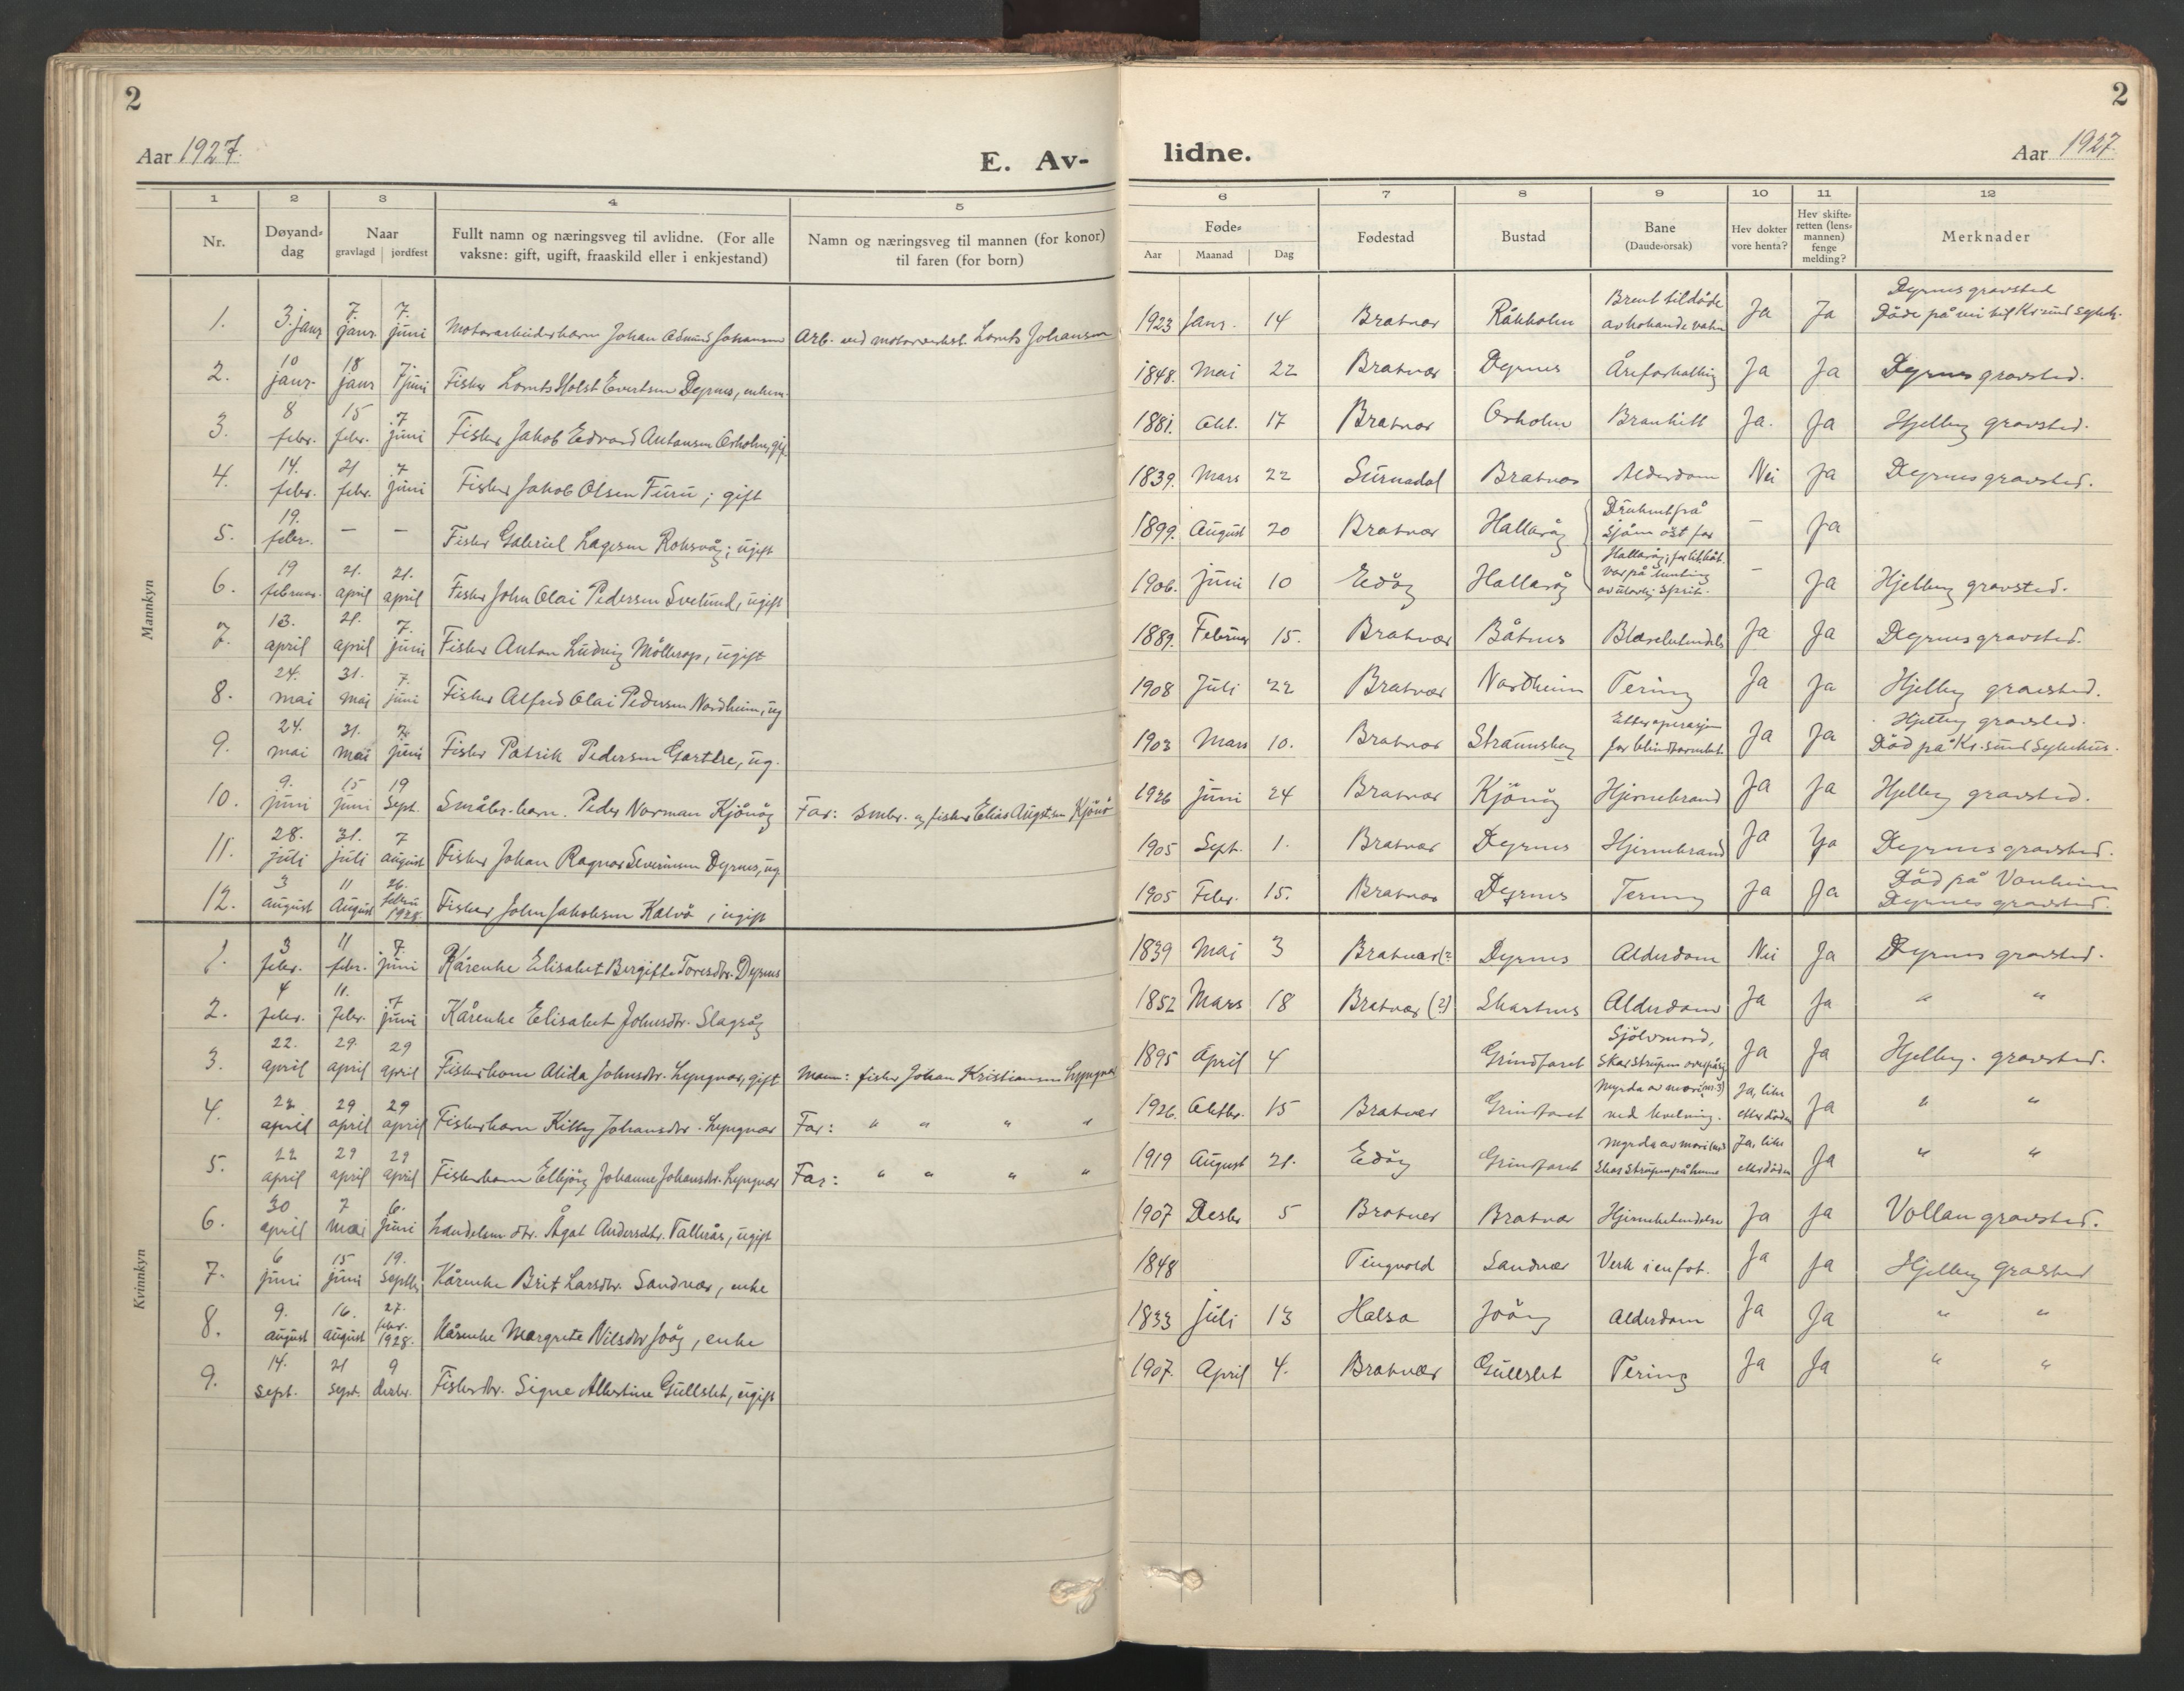 2
2
Aar 1927.
E. Av-
lidne.
Aar 1927.
1 2 3 4 5 6 7 8 9 10 11 12
Nr.
Døyand=
dag
Naar
gravlagd | jordfest
Fullt namn og næringsveg til avlidne. (For alle
vaksne: gift, ugift, fraaskild eller i enkjestand)
Namn og næringsveg til mannen (for konor)
til faren (for born)
Føde=
Aar Maanad Dag
Fødestad
Bustad
Bane
(Daude-orsak)
Hev dokter
vore henta?
Hev skifte=
retten (lens=
mannen)
fenge
melding?
Merknader
Mannkyn
1. 3. janr 7. janr. 7. juni Motorarbeiderbarn Johan Johansen Arb. ved motorverkst. Lornts Johansen 1923 Janr. 14 Bratvær Råkholm Brent til døde av kokande vatn Ja Ja Dyrnes gravsted Døde på vei til Kr.sund sykeh.
2. 10 janr. 18 janr 7 juni Fisker Lornts Holst Evertsen Dyrnes, enkem. 1848. Mai 22 Bratvær Dyrnes Åreforkalkng Ja Ja Dyrnes gravsted.
3. 8 febr. 15 febr. 7 juni Fisker Jakob Edvard Antonsen Orholm, gift 1881. Okt. 17 Bratvær Orholm Bronkitt Ja. Ja Hjelløy gravsted.
4. 14. febr. 21 febr. 7 juni Fisker Jakob Olsen Furu; gift 1839. Mars 22 Surnadal Bratvær Alderdom Nei Ja Dyrnes gravsted.
5. 19. febr. — — Fisker Gabriel Lagesen Roksvåg; ugift 1899. August 20 Bratvær Hallarøy Druknet på sjøen øst for — Ja
6. 19 februar. 21. april 21. april Fisker John Olai Pedersen Svelund, ugift 1906. juni 10 Edøy Hallarøy Hallarøy; var på henting av ulovlig sprit. — Ja Hjelløy gravsted.
7. 13. april 21. april 7. juni Fisker Anton Ludvig Møllerop, ugift 1889. Februar 15. Bratvær Båtnes Ja Ja Dyrnes gravsted.
8. 24. mai 31. mai 7. juni Fisker Alfred Olai Pedersen Nordheim, ug 1908 Juli 22 Bratvær Nordheim Tering Ja Ja Hjelløy gravsted.
9. 24. mai 31. mai 7. juni Fisker Patrik Pedersen ug. 1903 Mars 10. Bratvær Straumsbøy Etter operasjon for blindtarmbet. Ja Ja Hjelløy gravsted. Død på Kr.sund Sykehus.
10. 9. juni 15 juni 19 Sept. Småbr.-barn. Peder Norman Kjønøy Far: Småbr. og fisker Elias Augstsen Kjønø 1926 juni 24 Bratvær Kjønøy Hjernebrand Ja Ja Hjelløy gravsted.
11. 28. juli 31. juli 7 august Fisker Johan Ragnar Severinsen Dyrnes, ug. 1905 Sept. 1. Bratvær Dyrnes Hjernebrand Ja Ja Dyrnes gravsted.
12. 3 august 11 August 26. februar 1928. Fisker John Jakobsen Kalvø, ugift 1905 Febr. 15. Bratvær Dyrnes Tering Ja Ja Død på Vonheim Dyrnes gravsted.
Kvinnkyn
1. 3 febr. 11 febr. 7 juni Kårenke Elisabet Bergitte Toresdtr. Dyrnes 1839 Mai 3 Bratvær (? Dyrnes Alderdom Nei Ja Dyrnes gravsted.
2. 4 febr. 11. febr. 7 juni Kårenke Elisabet Johnsdtr. Slagsøy 1852 Mars 18 Bratvær (?) Skarsnes Alderdom Ja Ja " "
3. 22. april 29. april 29 april Fiskerkone Alida Johnsdtr. Lyngvær, gift Mann: fisker Johan Kristiansen Lyngvær 1895 April 4 Grindfaret Sjølvmord, skar strupen over på sig Ja Ja Hjelløy. gravsted.
4. 22 april 29 april 29 april Fiskerbarn Kitty Johansdtr. Lyngvær Far: " " " " 1926. Oktbr. 15 Bratvær Grindfaret Myrda av mori (nr. 3) ved kvelning. Ja, like etter døden Ja " "
5. 22 april 29 april 29 april Fiskerbarn Elbjørg Johanne Johansdtr. Lyngvær Far: " " " " 1919 August 21. Edøy Grindfaret Myrda av mori skar strupen på henne Ja, like etter døden Ja " "
6. 30 april 7 mai 6. juni Landelsm. dtr. Ågot Andersdtr. Vallnås, ugift 1907 Desbr 5 Bratvær Bratvær Hjernebetendelse Ja Ja Vollan gravsted.
7. 6 juni 15 juni 19. Septbr Kårenke Brit Larsdtr. Sandvær, enke 1848 Tingvold Sandvær Verk i en fot. Ja Ja Hjelløy gravsted
8. 9. august 16. august 27. febr. 1928. Kårenke Margrete Nilsdtr Joøy, enke 1833 juli 13 Halsa Joøy Alderdom Ja Ja " "
9. 14. sept. 21 sept. 9 desbr. Fiskerdtr. Signe Albertine Gullslet, ugift 1907. April 4. Bratvær Gullslet Tering Ja Ja " "